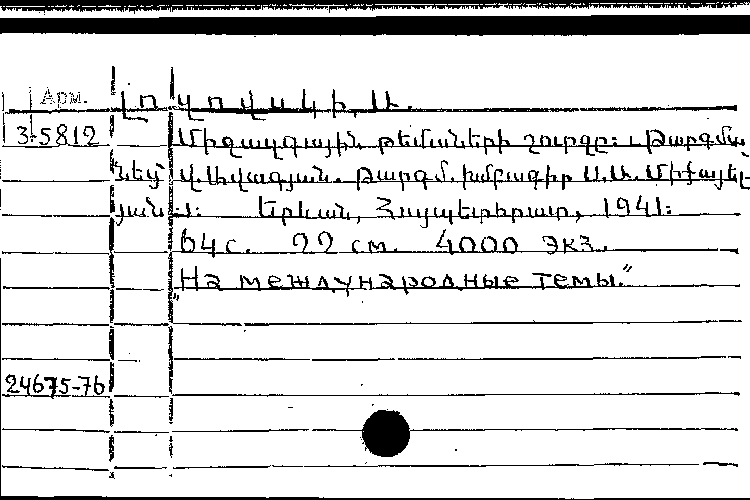 Арм. Լոզովսկի, Ա.
3-5812 Միջազգային թեմաների շուրջը: Թարգմա
նեց՝ Վ. Ավագյան. Թարգմ. խմբագիր Ա. Ա. Միքայել-
յան։ Երևան, Հայպետհրատ, 1941։
64 с. 22 см. 4000 экз.
"На международные темы."
24675-76